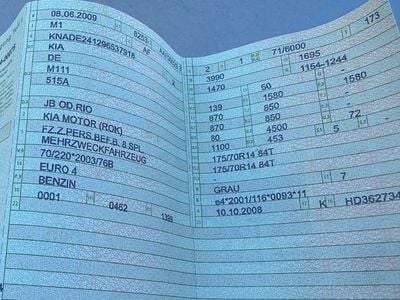 08.06.2009 8253
M1 AF
KNADE241296537918
KIA
DE
M111
515A
JB OD.RIO
KIA MOTOR (ROK)
FZ.Z.PERS.BEF.B. 8 SPL.
MEHRZWECKFAHRZEUG
70/220*2003/76B
EURO 4
BENZIN
0001 0462 1399
2 1 71/6000 173
3990 1695
1470 50 1154-1244
-
139 1580 1580
870 850 -
870 850 -
80 4500 72
1100 453 5
175/70R14 84T
175/70R14 84T
-
GRAU 7
e4*2001/116*0093*11
10.10.2008 K HD362734